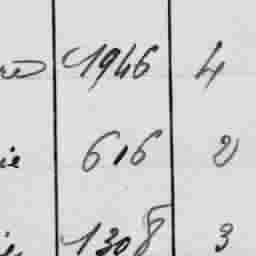 1946 4
ie 616 2
1308 3